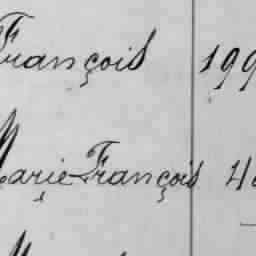 François 199
Marie François 4